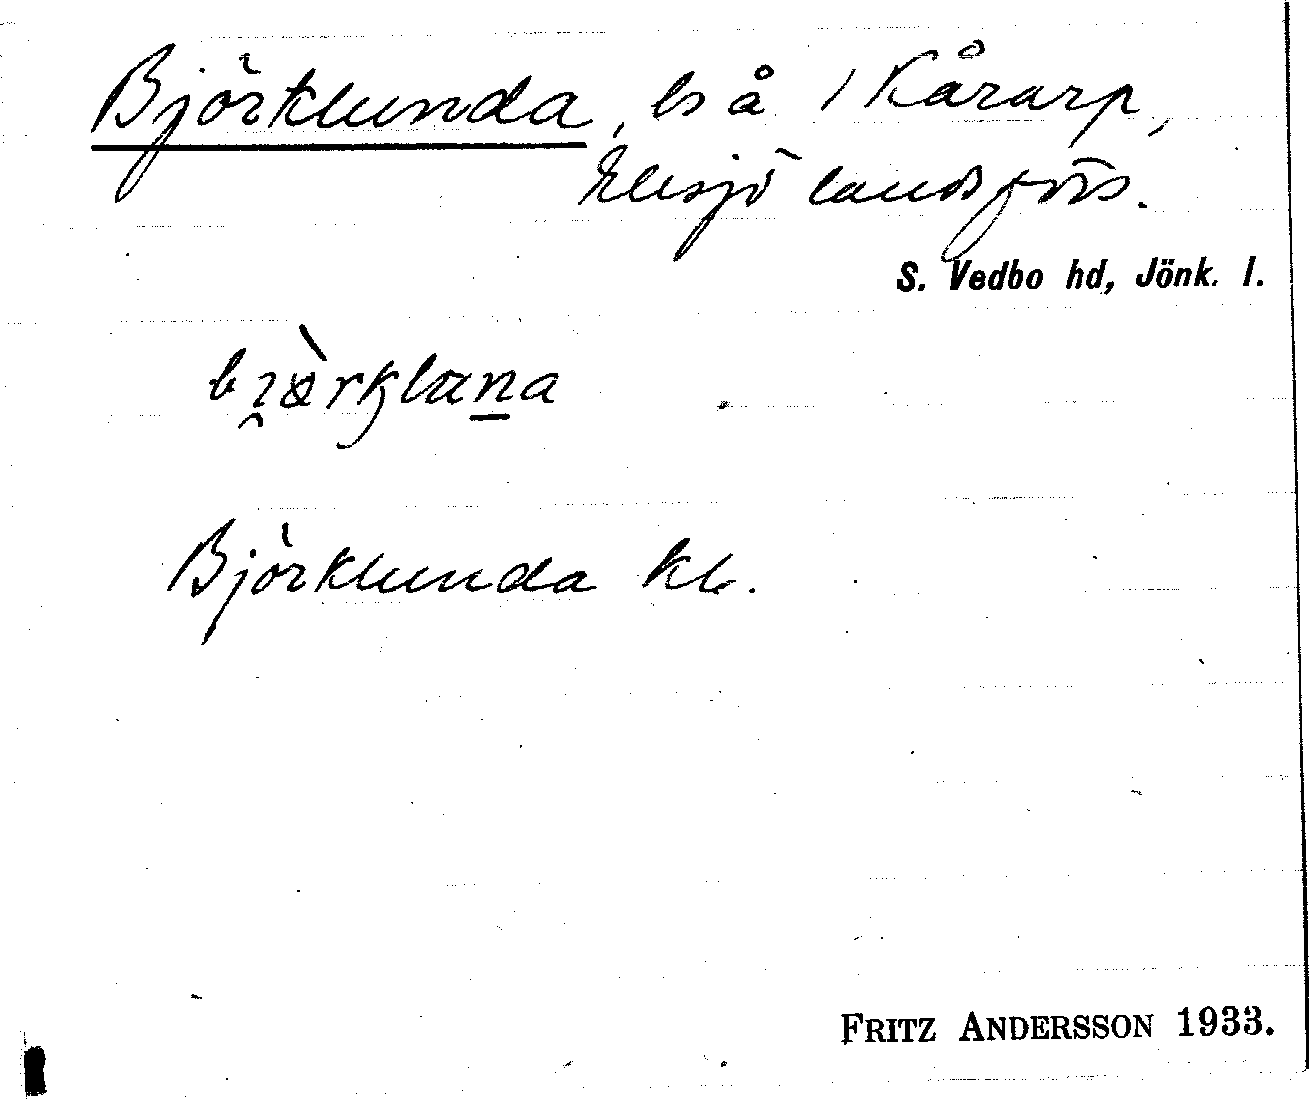 Björklunda, ls å 1 Kårarp,
Eksjö landsförs.
S. Vedbo hd, Jönk. l.
Björklunda kb.
FRITZ ANDERSSON 1933.